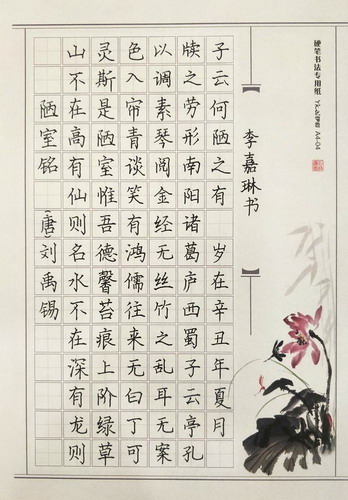 陋室铭 （唐）刘禹锡
山不在高有仙则名水不在深有龙则
灵斯是陋室惟吾德馨苔痕上阶绿草
色入帘青谈笑有鸿儒往来无白丁可
以调素琴阅金经无丝竹之乱耳无案
牍之劳形南阳诸葛庐西蜀子云亭孔
子云何陋之有 岁在辛丑年夏月
【李嘉琳书】
硬笔书法专用纸 A4-04